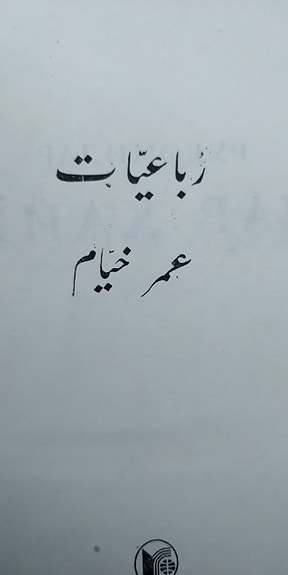 رُباعیّات
عمر خیّام